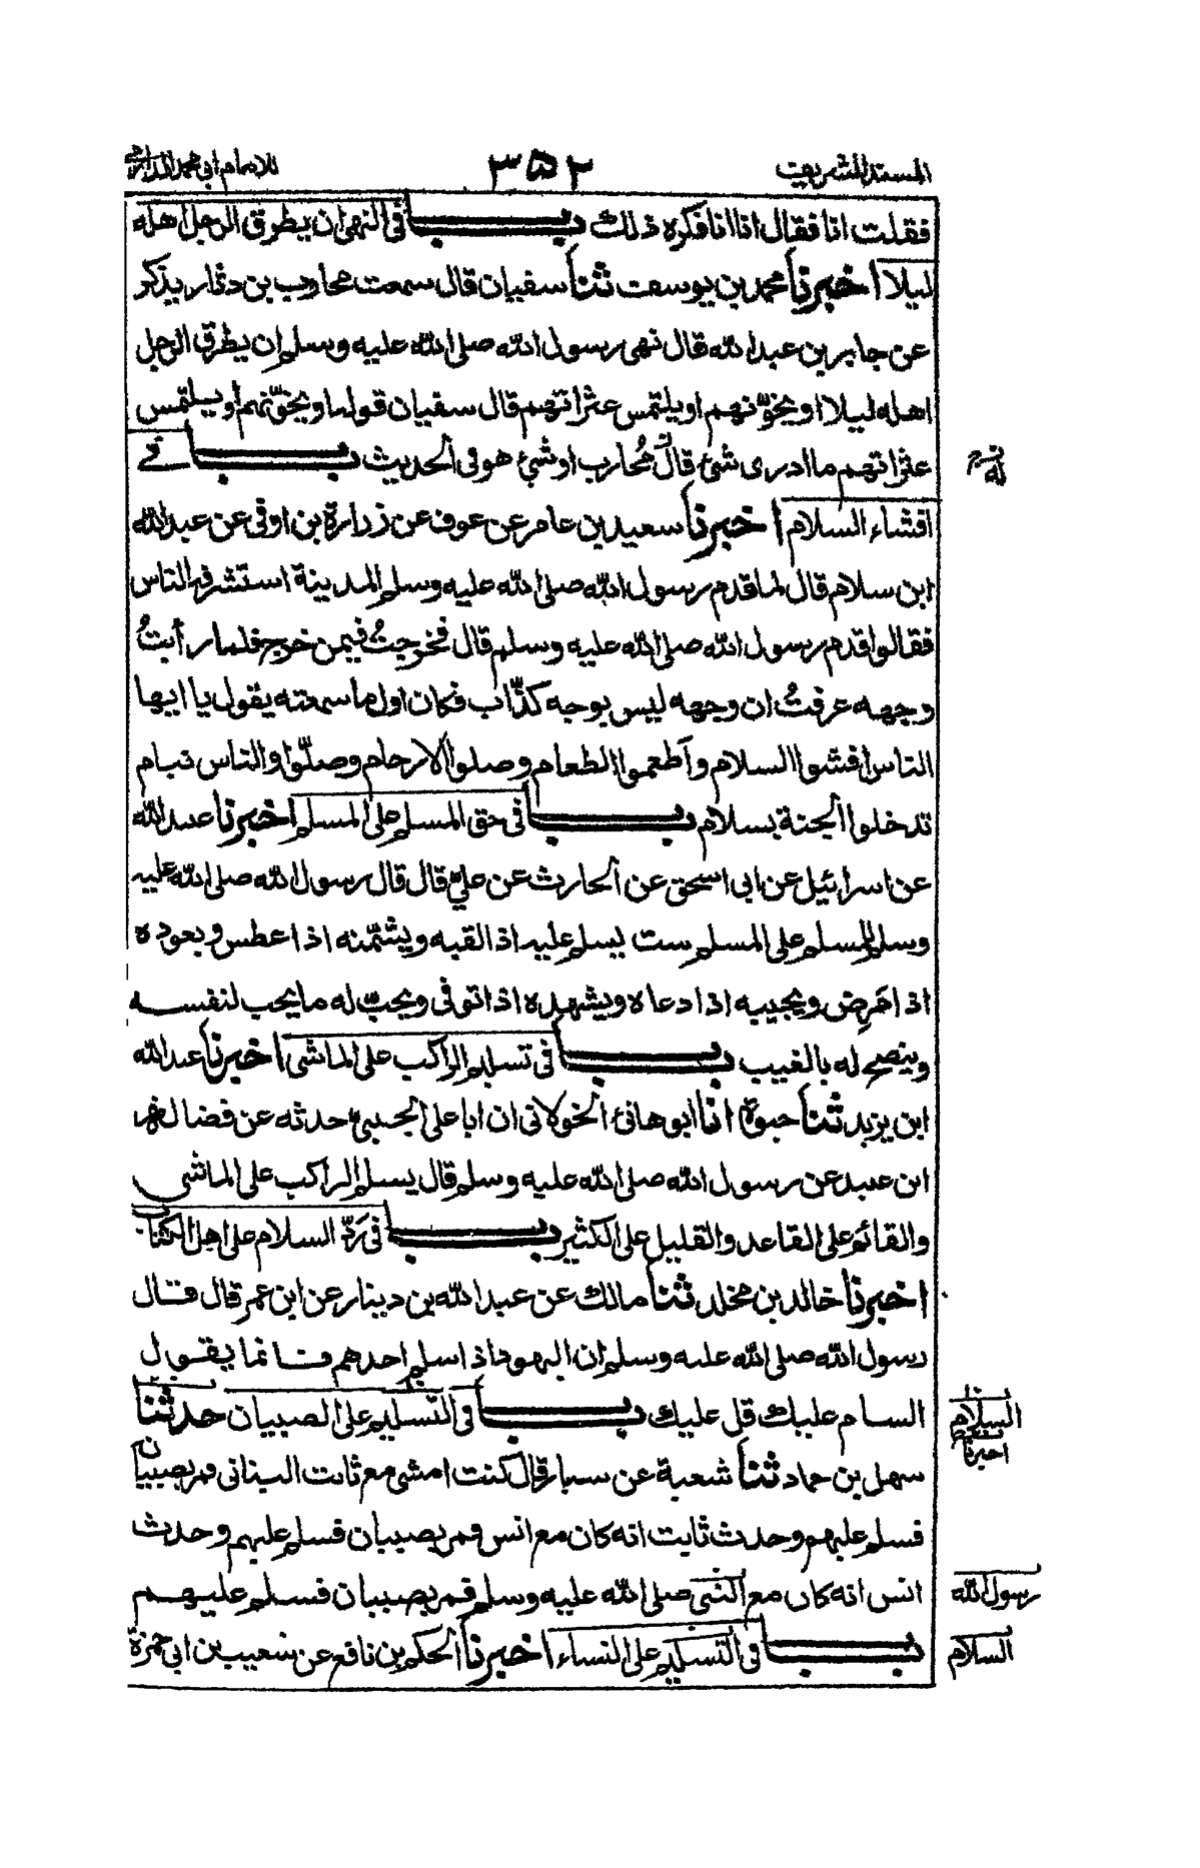 المسند الشريف ٣٥٢ للامام ابى محمد الدارمى
فقلت انا فقال انا انا فكره ذلك بــــاب فى النهى ان يطرق الرجل اهله
ليلا اخبرنا محمد بن يوسف ثنا سفيان قال سمعت محارب بن دثار يذكر
عن جابر بن عبد الله قال نهى رسول الله صلى الله عليه وسلم ان يطرق الرجل
اهله ليلا او يخوّنهم او يلتمس عثراتهم قال سفيان قوله او يخوّنهم او يلتمس
عثراتهم ما ادرى شئ قال مُحارب او شئ هو فى الحديث بــــاب فى
افشاء السلام اخبرنا سعيد بن عامر عن عوف عن زرارة بن اوفى عن عبد الله
ابن سلام قال لما قدم رسول الله صلى الله عليه وسلم المدينة استشرفه الناس
فقالوا قدم رسول الله صلى الله عليه وسلم قال فخرجتُ فيمن خرج فلما رأيتُ
وجهه عرفتُ ان وجهه ليس بوجه كذّاب فكان اول ما سمعته يقول يا ايها
الناس افشوا السلام وأطعموا الطعام وصلوا الارحام وصلّوا والناس نيام
تدخلوا الجنة بسلام بــــاب فى حق المسلم على المسلم اخبرنا عبيد الله
عن اسرائيل عن ابى اسحٰق عن الحارث عن علىّ قال قال رسول الله صلى الله عليه
وسلم للمسلم على المسلم ست يسلم عليه اذا لقيه ويشمّته اذا عطس ويعوده
اذا مَرِض ويجيبه اذا دعاه ويشهده اذا توفى ويحبّ له ما يحب لنفسه
وينصح له بالغيب بــــاب فى تسليم الراكب على الماشى اخبرنا عبد الله
ابن يزيد ثنا حيوة انا ابو هانئ الخولانى ان ابا على الجنبى حدثه عن فضالة
ابن عبيد عن رسول الله صلى الله عليه وسلم قال يسلم الراكب على الماشى
والقائم على القاعد والقليل على الكثير بــــاب فى رَدّ السلام على اهل الكتاب
اخبرنا خالد بن مخلد ثنا مالك عن عبد الله بن دينار عن ابن عمر قال قال
رسول الله صلى الله عليه وسلم ان اليهود اذا سلم احدهم فانما يقول
السام عليك قل عليك بــــاب فى التسليم على الصبيان حدثنا
السلام
اخبرنا
سهل بن حماد ثنا شعبة عن سيار قال كنت امشى مع ثابت البنانى فمر بصبيان
فسلم عليهم وحدث ثابت انه كان مع انس فمر بصبيان فسلم عليهم وحدث
انس انه كان مع النبى صلى الله عليه وسلم فمر بصبيان فسلم عليهم
رسول الله
بــــاب فى التسليم على النساء اخبرنا الحكم بن نافع عن شعيب بن ابى حمزة
السلام